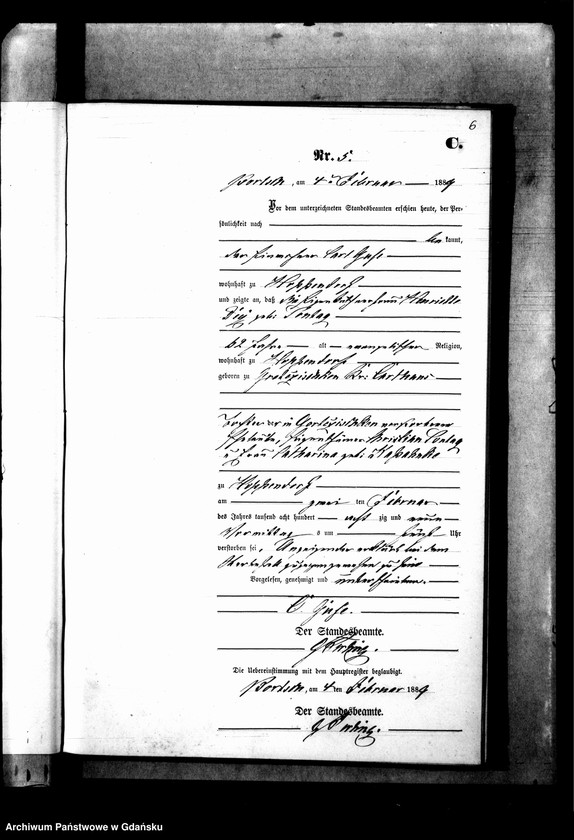 6
C.
Nr. 5.
am 4. Februar 1889
Vor dem unterzeichneten Standesbeamten erschien heute, der Per-
sönlichkeit nach
be kannt,
der Einwohner Carl
wohnhaft zu Hoppendorf
und zeigte an, daß die Eigenthümerfrau Henriette
geb: Sontag
62 Jahre alt evangelischer Religion,
wohnhaft zu Hoppendorf
geboren zu Kr: Carthaus
Tochter der in verstorbenen
Eheleute, Eigenthümer Christian Sontag
u Frau Catharina geb:
zu Hoppendorf
am zwei ten Februar
des Jahres tausend acht hundert acht zig und neun
Vormittags um fünf Uhr
verstorben sei, Anzeigender erklärt bei dem
Sterbefall zugegen gewesen zu sein
Vorgelesen, genehmigt und unterschrieben.
C.
Der Standesbeamte.
Die Uebereinstimmung mit dem Hauptregister beglaubigt.
am 4 ten Februar 1889
Der Standesbeamte.
Archiwum Państwowe w Gdańsku